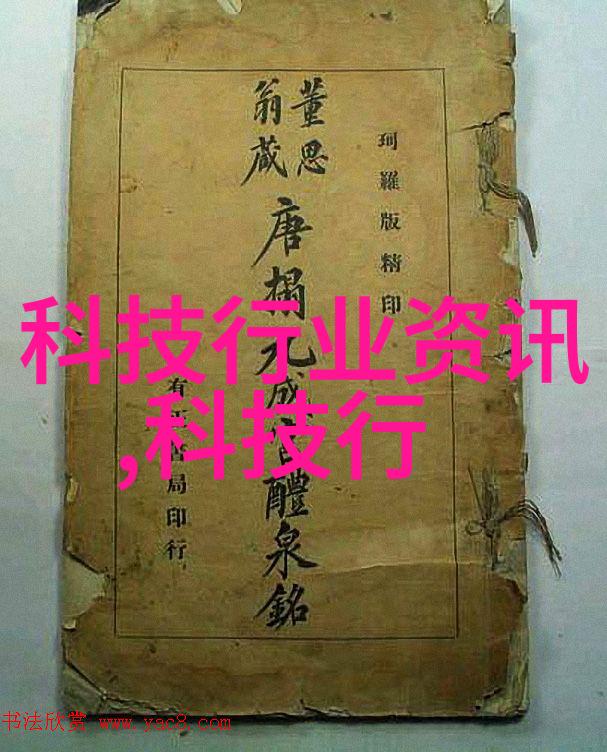 珂羅版精印
董思
翁藏
唐搨九成宮醴泉銘
有正書局印行
科技行业资讯
,科技行
书法欣赏 www.yac8.com